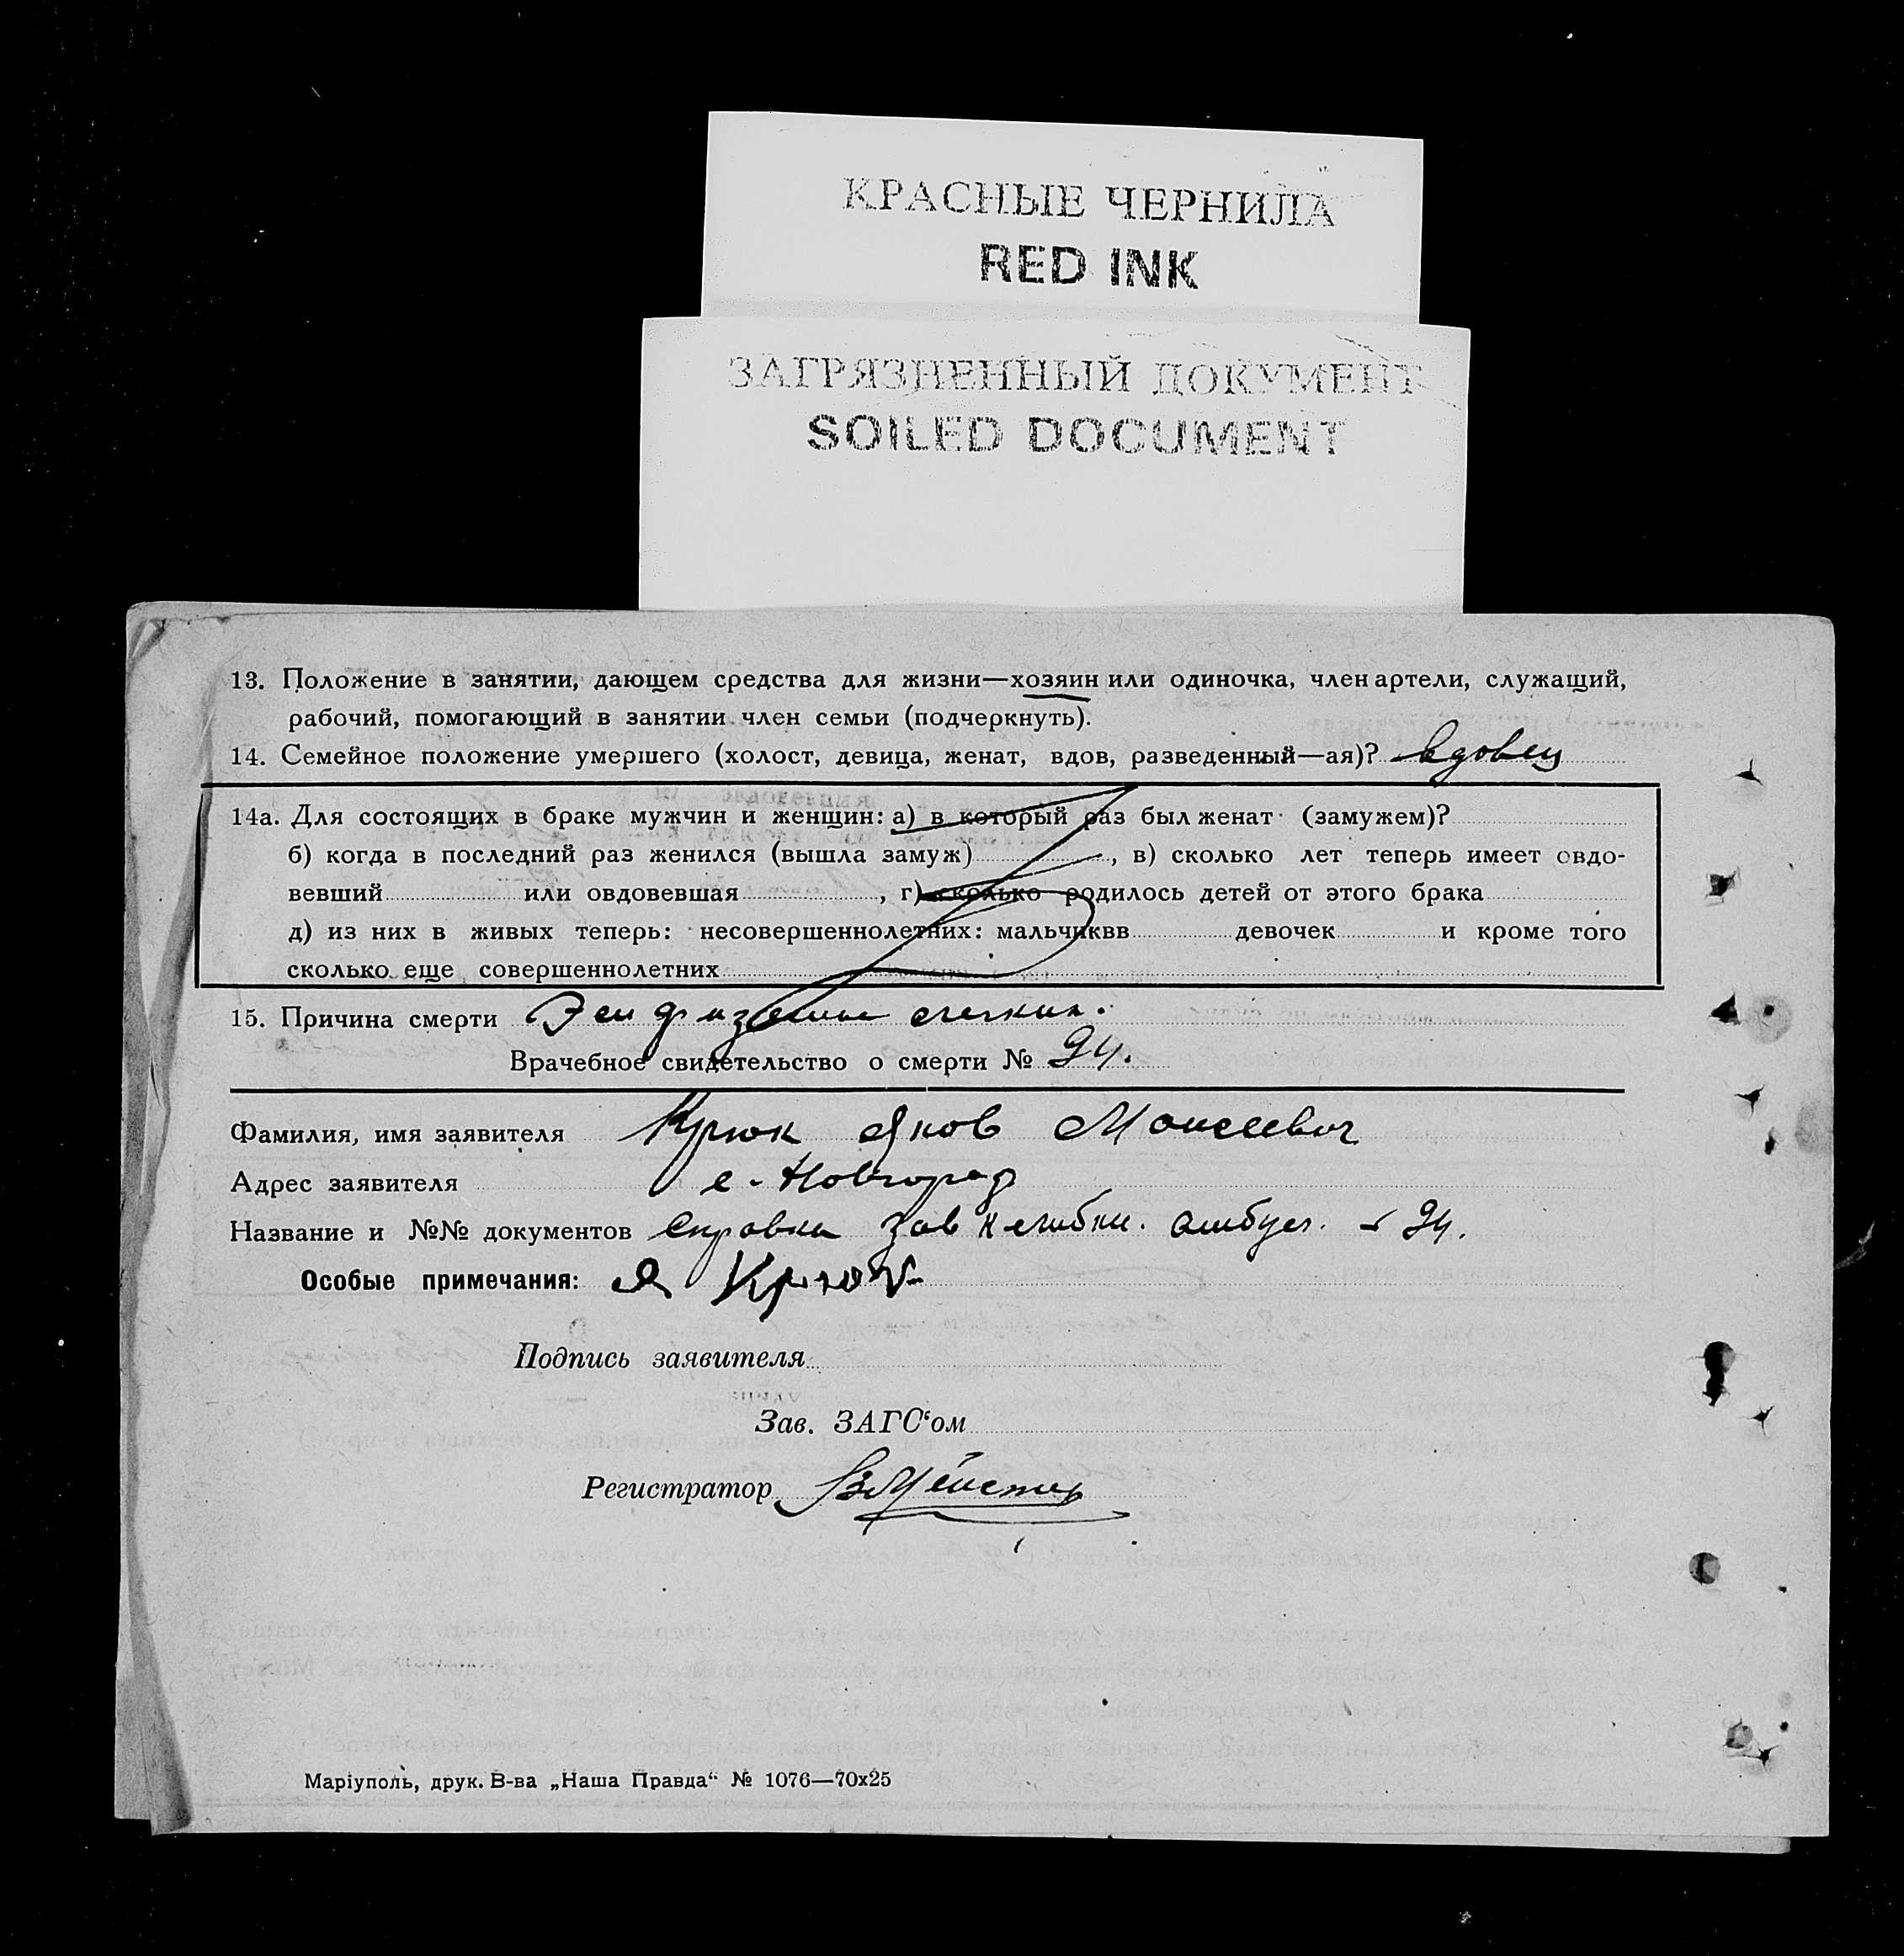 КРАСНЫЕ ЧЕРНИЛА
RED INK
ЗАГРЯЗНЕННЫЙ ДОКУМЕНТ
SOILED DOCUMENT
13. Положение в занятии, дающем средства для жизни—хозяин или одиночка, член артели, служащий,
рабочий, помогающий в занятии член семьи (подчеркнуть).
14. Семейное положение умершего (холост, девица, женат, вдов, разведенный—ая)? вдовец
14а. Для состоящих в браке мужчин и женщин: а) в который раз был женат (замужем)?
б) когда в последний раз женился (вышла замуж) , в) сколько лет теперь имеет овдо-
вевший или овдовевшая , г) сколько родилось детей от этого брака
д) из них в живых теперь: несовершеннолетних: мальчиквв девочек и кроме того
сколько еще совершеннолетних
15. Причина смерти
Врачебное свидетельство о смерти № 94.
Фамилия, имя заявителя Крюк Яков Моисеевич
Адрес заявителя с. Новгород
Название и №№ документов Справка зав амбул. 94.
Особые примечания: Я Крюк
Подпись заявителя
Зав. ЗАГС‘ом
Регистратор
Маріуполь, друк. В-ва „Наша Правда“ № 1076—70х25